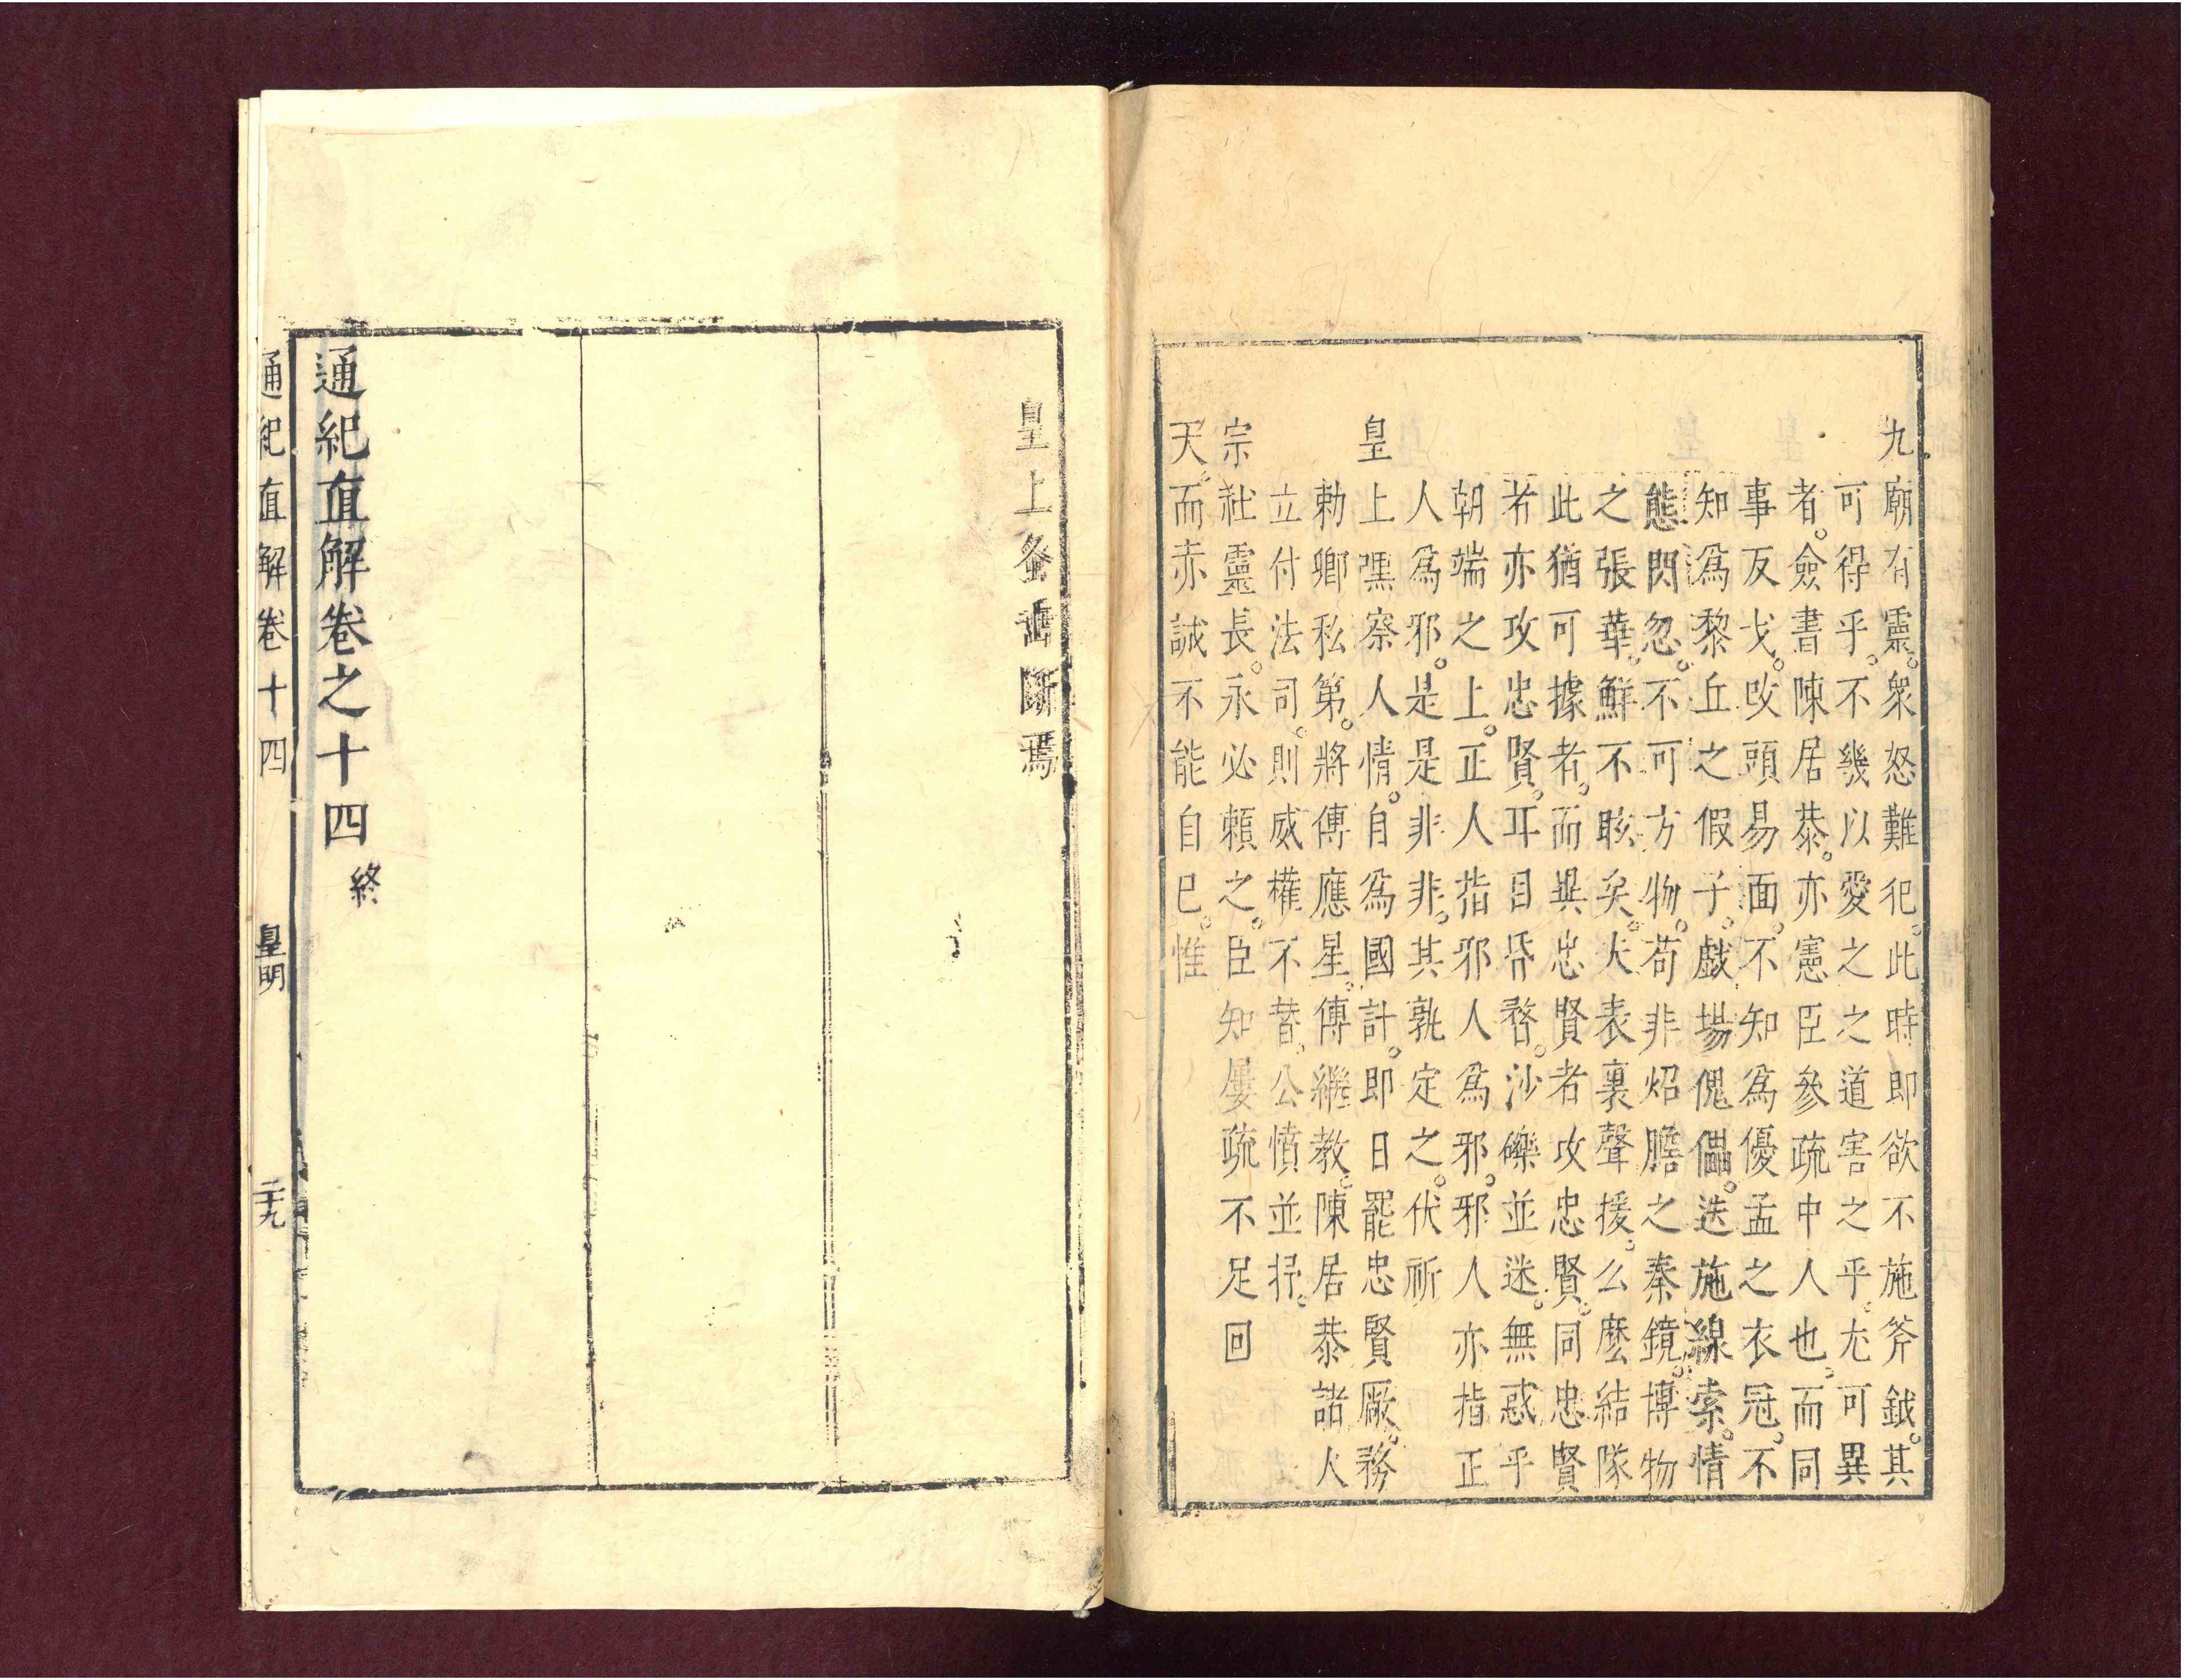 九廟有靈衆怒難犯此時即欲不施斧鉞其
可得乎不幾以愛之之道害之乎尤可異
者僉書陳居恭亦憲臣參疏中人也而同
事反戈改頭易面不知爲優孟之衣冠不
知爲黎丘之假子戲場傀儡迭施線索情
態閃忽不可方物苟非炤膽之秦鏡博物
之張華鮮不眩矣大表裏聲援么麽結隊
此猶可據者而與忠賢者攻忠賢同忠賢
若亦攻忠賢耳目昏瞀沙礫並迷無惑乎
朝端之上正人指邪人爲邪邪人亦指正
人爲邪是是非非其孰定之伏祈
皇上㷸察人情自爲國計即日罷忠賢厰務
勅歸私第將傅應星傅繼教陳居恭諸人
立付法司則威權不替公憤並抒
宗社靈長永必賴之臣知屢疏不足回
天而赤誠不能自已惟
皇上蚤斷焉
通紀直解卷之十四終
通紀直解卷十四 皇明 二十九